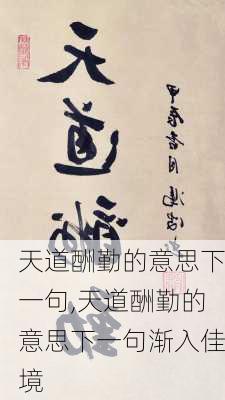 天道酬勤
甲辰杏月
天道酬勤的意思下
一句,天道酬勤的
意思下一句渐入佳
境